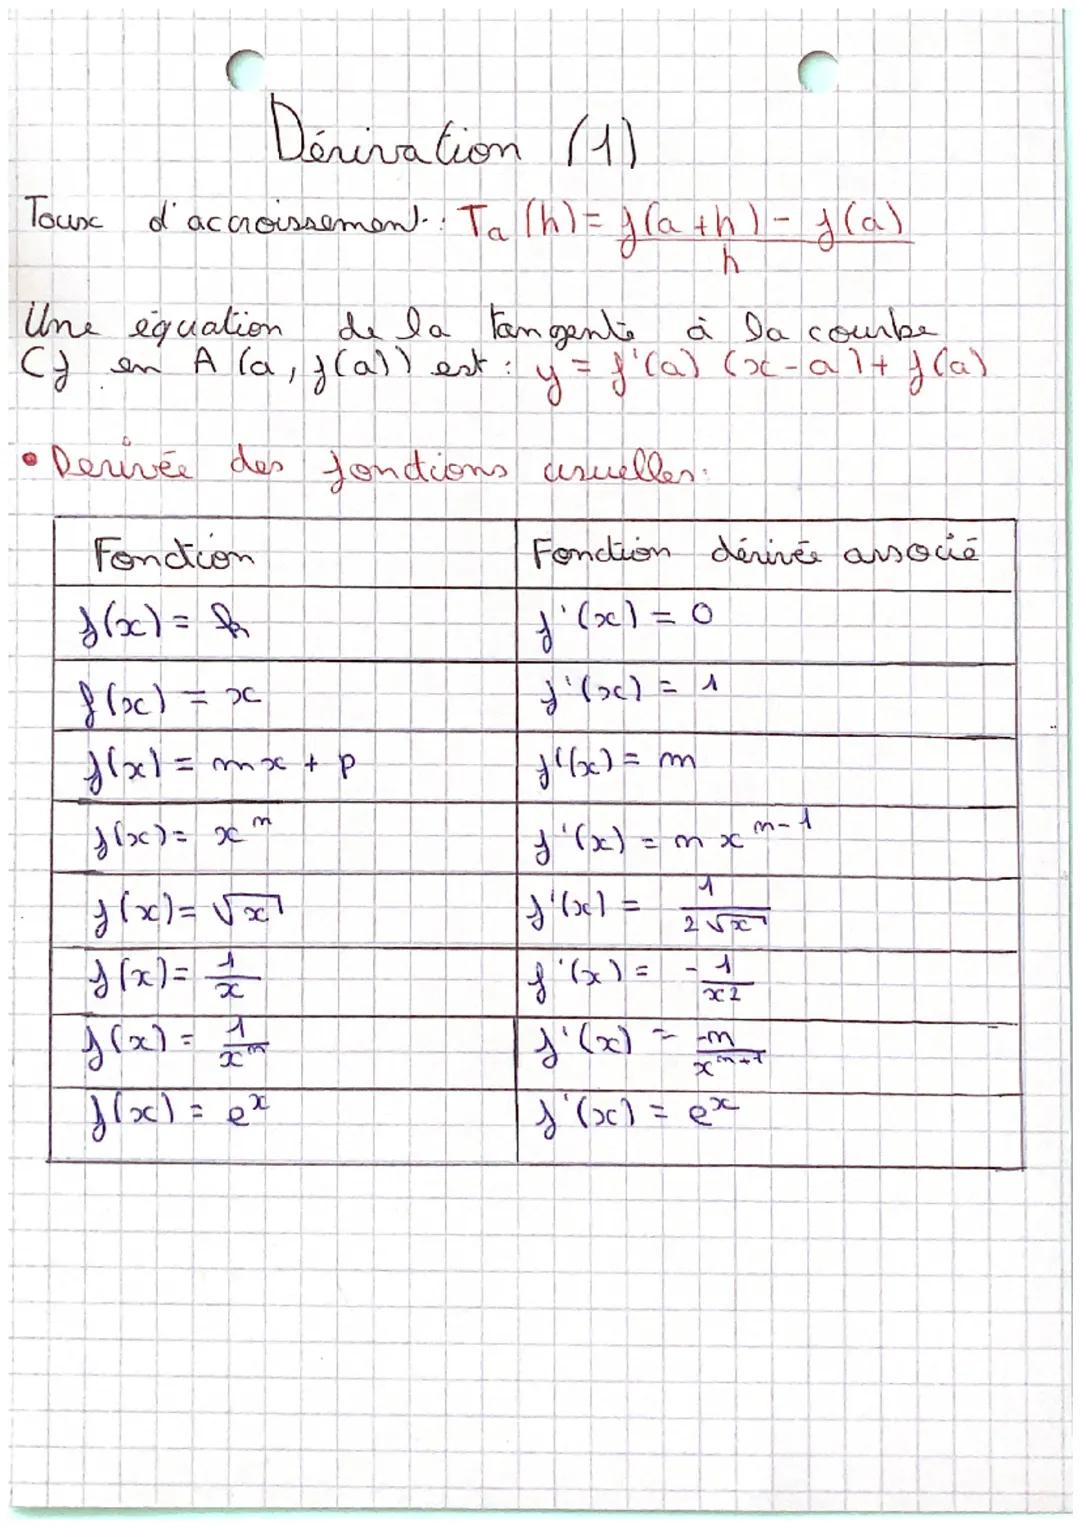 Dérivation (1)
Taux d'accroissement : Ta (h) = f(a+h) - f(a) / h
Une équation de la tangente à la courbe
Cf en A (a, f(a)) est : y = f'(a) (x-a) + f(a)
• Derivée des fonctions usuelles:
Fonction | Fonction dérivée associé
f(x) = k | f'(x) = 0
f(x) = x | f'(x) = 1
f(x) = mx + p | f'(x) = m
f(x) = xⁿ | f'(x) = n xⁿ⁻¹
f(x) = √x | f'(x) = 1 / 2√x
f(x) = 1/x | f'(x) = - 1/x²
f(x) = 1/xⁿ | f'(x) = -n/xⁿ⁺¹
f(x) = eˣ | f'(x) = eˣ